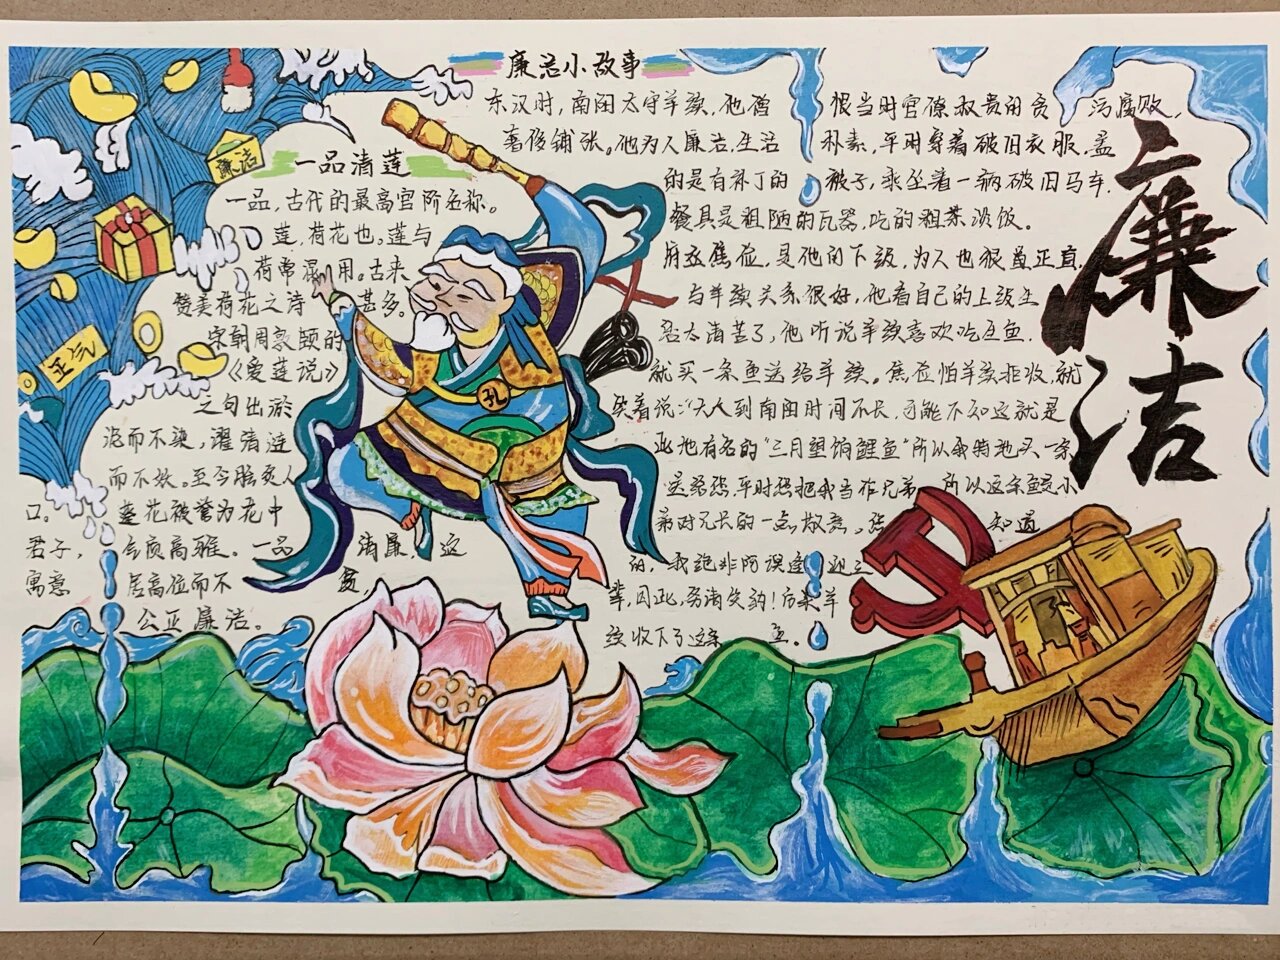 廉洁小故事
东汉时，南阳太守羊续，他憎恨当时官僚权贵的贪污腐败，
奢侈铺张。他为人廉洁，生活朴素，平时穿着破旧衣服，盖
的是有补丁的被子，乘坐着一辆破旧马车.
餐具是粗陋的瓦器，吃的粗茶淡饭。
府丞焦俭，是他的下级，为人也很正直，
与羊续关系很好，他看自己的上级生
活太清苦了，他听说羊续喜欢吃生鱼.
就买一条鱼送给羊续。焦俭怕羊续拒收，就
笑着说："大人到南阳时间不长，可能不知这就是
此地有名的"三月望饷鲤鱼"所以我特地买一条
送给您，平时您把我当作兄弟，所以这条鱼是小
弟对兄长的一点敬意。您知道
的，我绝非阿谀逢迎之
辈，因此，务请笑纳！"
续收下了这条鱼。
廉洁
廉洁
一品清莲
一品，古代的最高官阶名称。
莲，荷花也，莲与
荷常混用。古来
赞美荷花之诗甚多。
宋朝周敦颐的
《爱莲说》
之句出淤
泥而不染，濯清涟
而不妖。至今脍炙人
口。莲花被誉为花中
君子，气质高雅。一品清廉，这
寓意居高位而不
公正廉洁。
孔